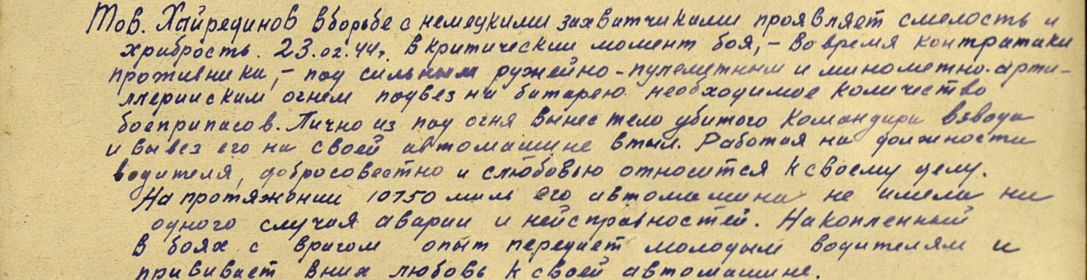 Тов. Хайрединов в борьбе с немецкими захватчиками проявляет смелость и
храбрость. 23.02.44г. в критический момент боя, – во время контратаки
противника, – под сильным ружейно-пулеметным и минометно-арти-
ллерийским огнем подвез на батарею необходимое количество
боеприпасов. Лично из под огня вынес тело убитого командира взвода
и вывез его на своей автомашине в тыл. Работая на должности
водителя, добросовестно и с любовью относится к своему делу.
На протяжении 10750 миль его автомашина не имела ни
одного случая аварии и неисправностей. Накопленный
в боях с врагом опыт передает молодым водителям и
прививает в них любовь к своей автомашине.